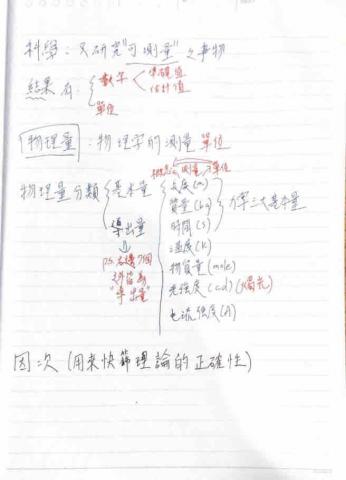 科學：只研究"可測量"之事物
結果有 { 數字 < 準確值
估計值
單位
物理量：物理學的測量單位
測量 單位
物理量分類 { 基本量 { 長度(m)
質量(kg)
時間(s) } 力學三大基本量
溫度(K)
物質量(mole)
光強度(cd)(燭光)
電流強度(A)
導出量
⇓
p.s. 右邊7個
之外皆為
"導出量"
因次 (用來快篩理論的正確性)